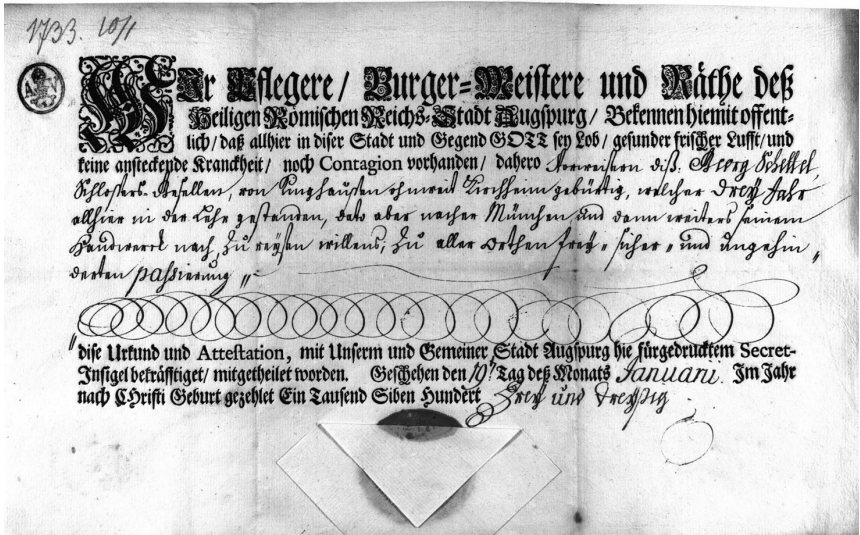 1733. 10/1
WIr Pflegere/ Burger-Meistere und Räthe deß
Heiligen Römischen Reichs-Stadt Augspurg/ Bekennen hiemit offent-
lich/ daß allhier in diser Stadt und Gegend GOTT sey Lob/ gesunder frischer Lufft/ und
keine ansteckende Kranckheit/ noch Contagion vorhanden/ dahero Vorweisern diß. Georg
Schlossers-Gesellen, von ohnweit Kirchheim gebürtig, welcher drey Jahr
allhier in der Lehr gestanden, dato aber nacher München, und dann weiters seinem
Handwerck nach, zu reysen willens, zu aller Orthen frey- sicher- und ungehin„
derten passierung„
„dise Urkund und Attestation, mit Unserm und Gemeiner Stadt Augspurg hie fürgedrucktem Secret-
Insigel bekräfftiget/ mitgetheilet worden. Geschehen den Tag deß Monats Januarii. Im Jahr
nach CHristi Geburt gezehlet Ein Tausend Siben Hundert Drey und Dreyßig